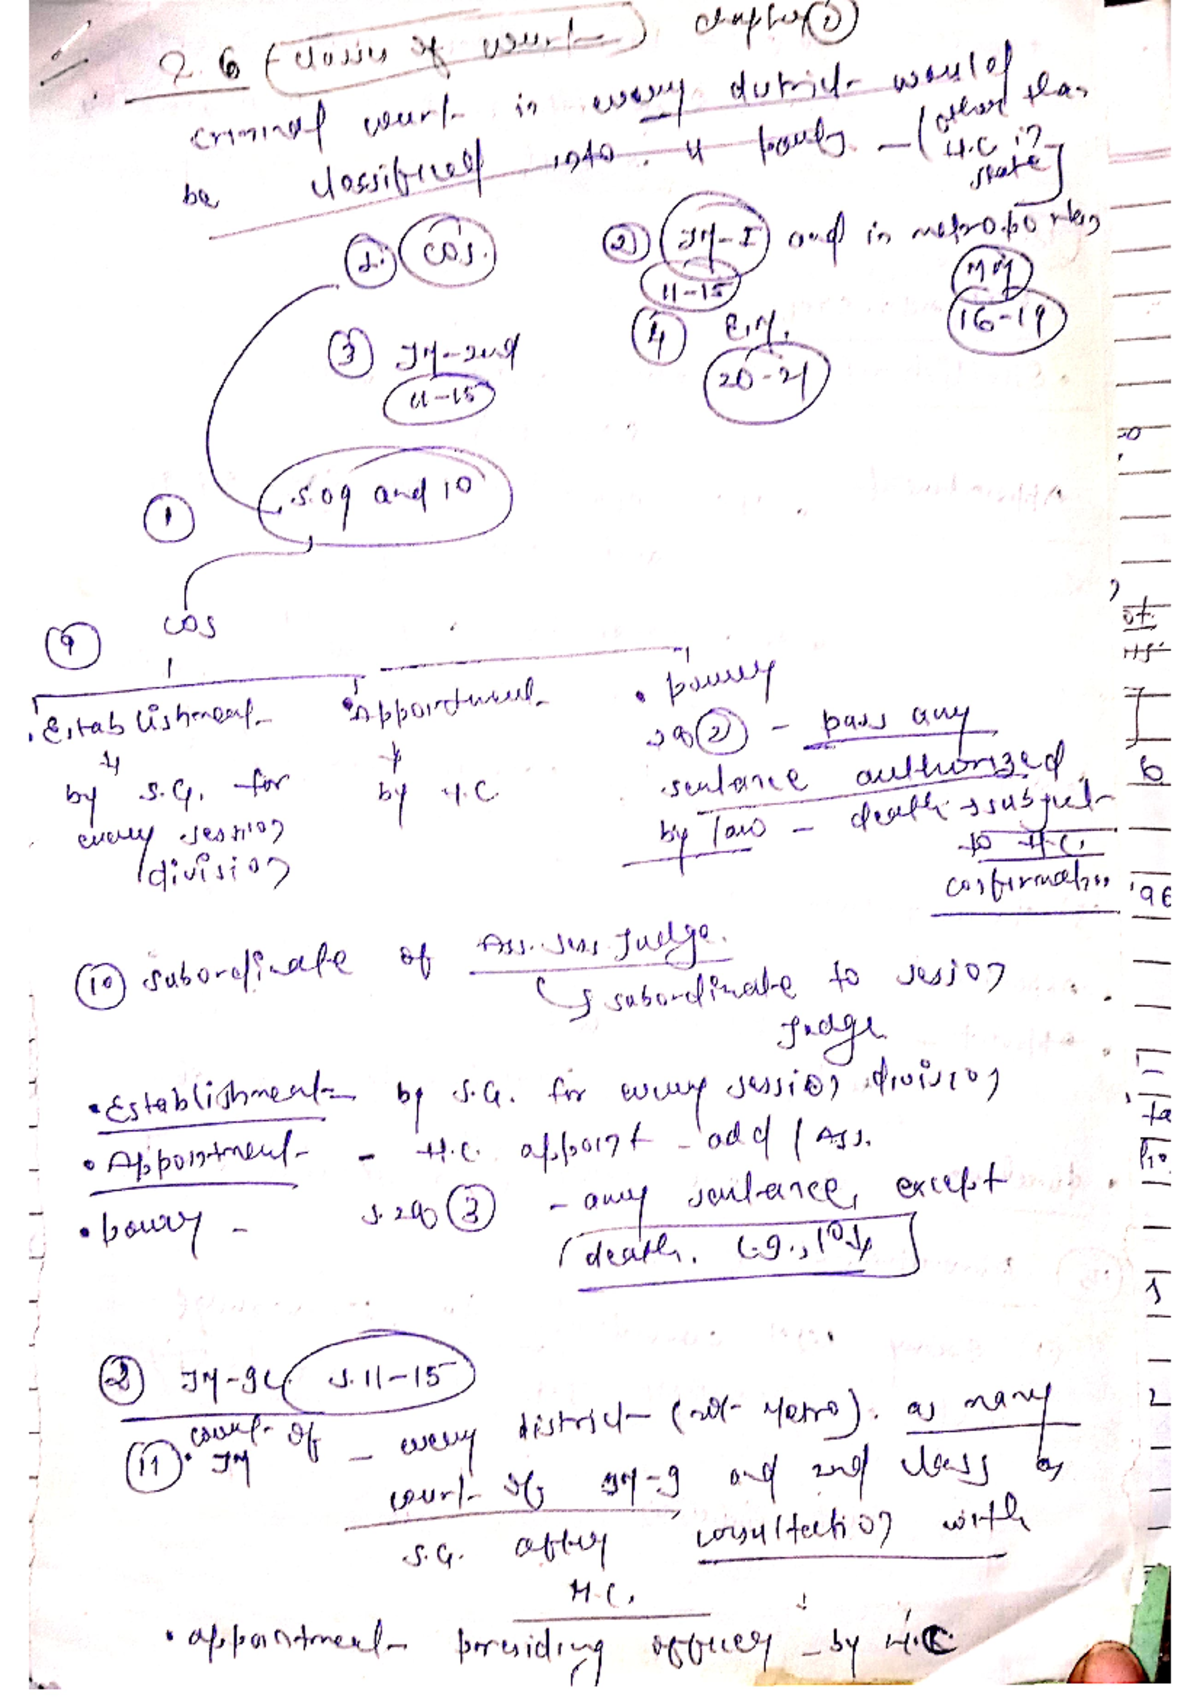 2.6 (classes of court) chapter ②
criminal court in every district would
be classified into 4 parts - (other than
H.C in
state)
1. COS. ② JM-I and in metropolitan
11-15 MM
16-19
③ JM-2nd ④ E.M.
11-15 20-21
① S.09 and 10
⑨ COS
• Establishment • Appointment • power
by S.G. for every session division
by H.C.
28② - pass any
sentence authorized
by law - death → subject
to H.C.
confirmation
⑩ subordinate of Ass. Sess. Judge.
↳ subordinate to session
Judge
• Establishment by S.G. for every session division
• Appointment - H.C. appoint - add / Ass.
• power - S.28 ③ - any sentence, except
death.
② S.11-15
⑪ • court of JM - every district (not Metro). as many
court of and 2nd class as
S.G. after consultation with
H.C.
• appointment presiding officer - by H.C